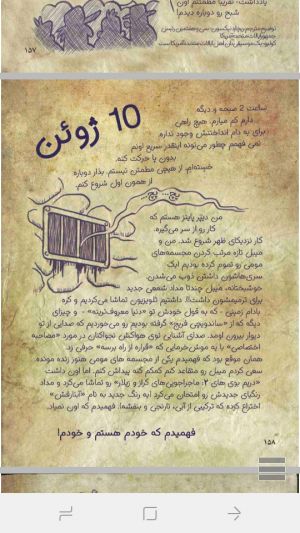 یادداشت: تقریبا مطمئنم اون
شبح رو دوباره دیدم!
۱۵۷
10 ژوئن
ساعت 2 صبحه و دیگه
دارم کم میارم. هیچ راهی
برای به دام انداختنش وجود نداره.
نمی فهمم چطور می‌تونه اینقدر سریع اونم
بدون پا حرکت کنه.
خسته‌ام. از هیچی مطمئن نیستم. بذار دوباره
از همون اول شروع کنم.
من دیپر پاینز هستم که
کار رو از سر می‌گیره.
کار نزدیکای ظهر شروع شد. من و
میبل تازه مرتب کردن مجسمه‌های
مومی رو تموم کرده بودیم (یک
سری‌هاشون داشتن ذوب می‌شدن.
خوشبختانه، میبل چندتا مداد شمعی جدید
برای ترمیمشون داشت). داشتیم تلویزیون تماشا می‌کردیم و کره
بادام زمینی - که به قول خودش تو «دنیا معروف‌ترینه» - و چیزای
دیگه که از «ساندویچی فریج» گرفته بودیم رو می‌خوردیم که صدایی از تو
دیوار بیرون اومد. صدای آشنای توی هواکش نجواکنان در مورد «مصاحبه
اختصاصی» با یه موش‌خرمایی که «قراره از راه برسه» حرفی زد.
همان موقع بود که فهمیدم یکی از مجسمه های مومی هنوز زنده مونده.
سعی کردم میبل رو متقاعد کنم کمکم کنه پیداش کنم. اما اون داشت
«دریم بوی های ۲: ماجراجویی‌های کراز و زیلار» رو تماشا می‌کرد و مداد
رنگیای جدیدش رو امتحان می‌کرد (یه رنگ جدید به نام «آبنارفنش»
اختراع کرده که ترکیبی از آبی، نارنجی و بنفشه). فهمیدم که اون نمیاد.
فهمیدم که خودم هستم و خودم!
۱۵۸